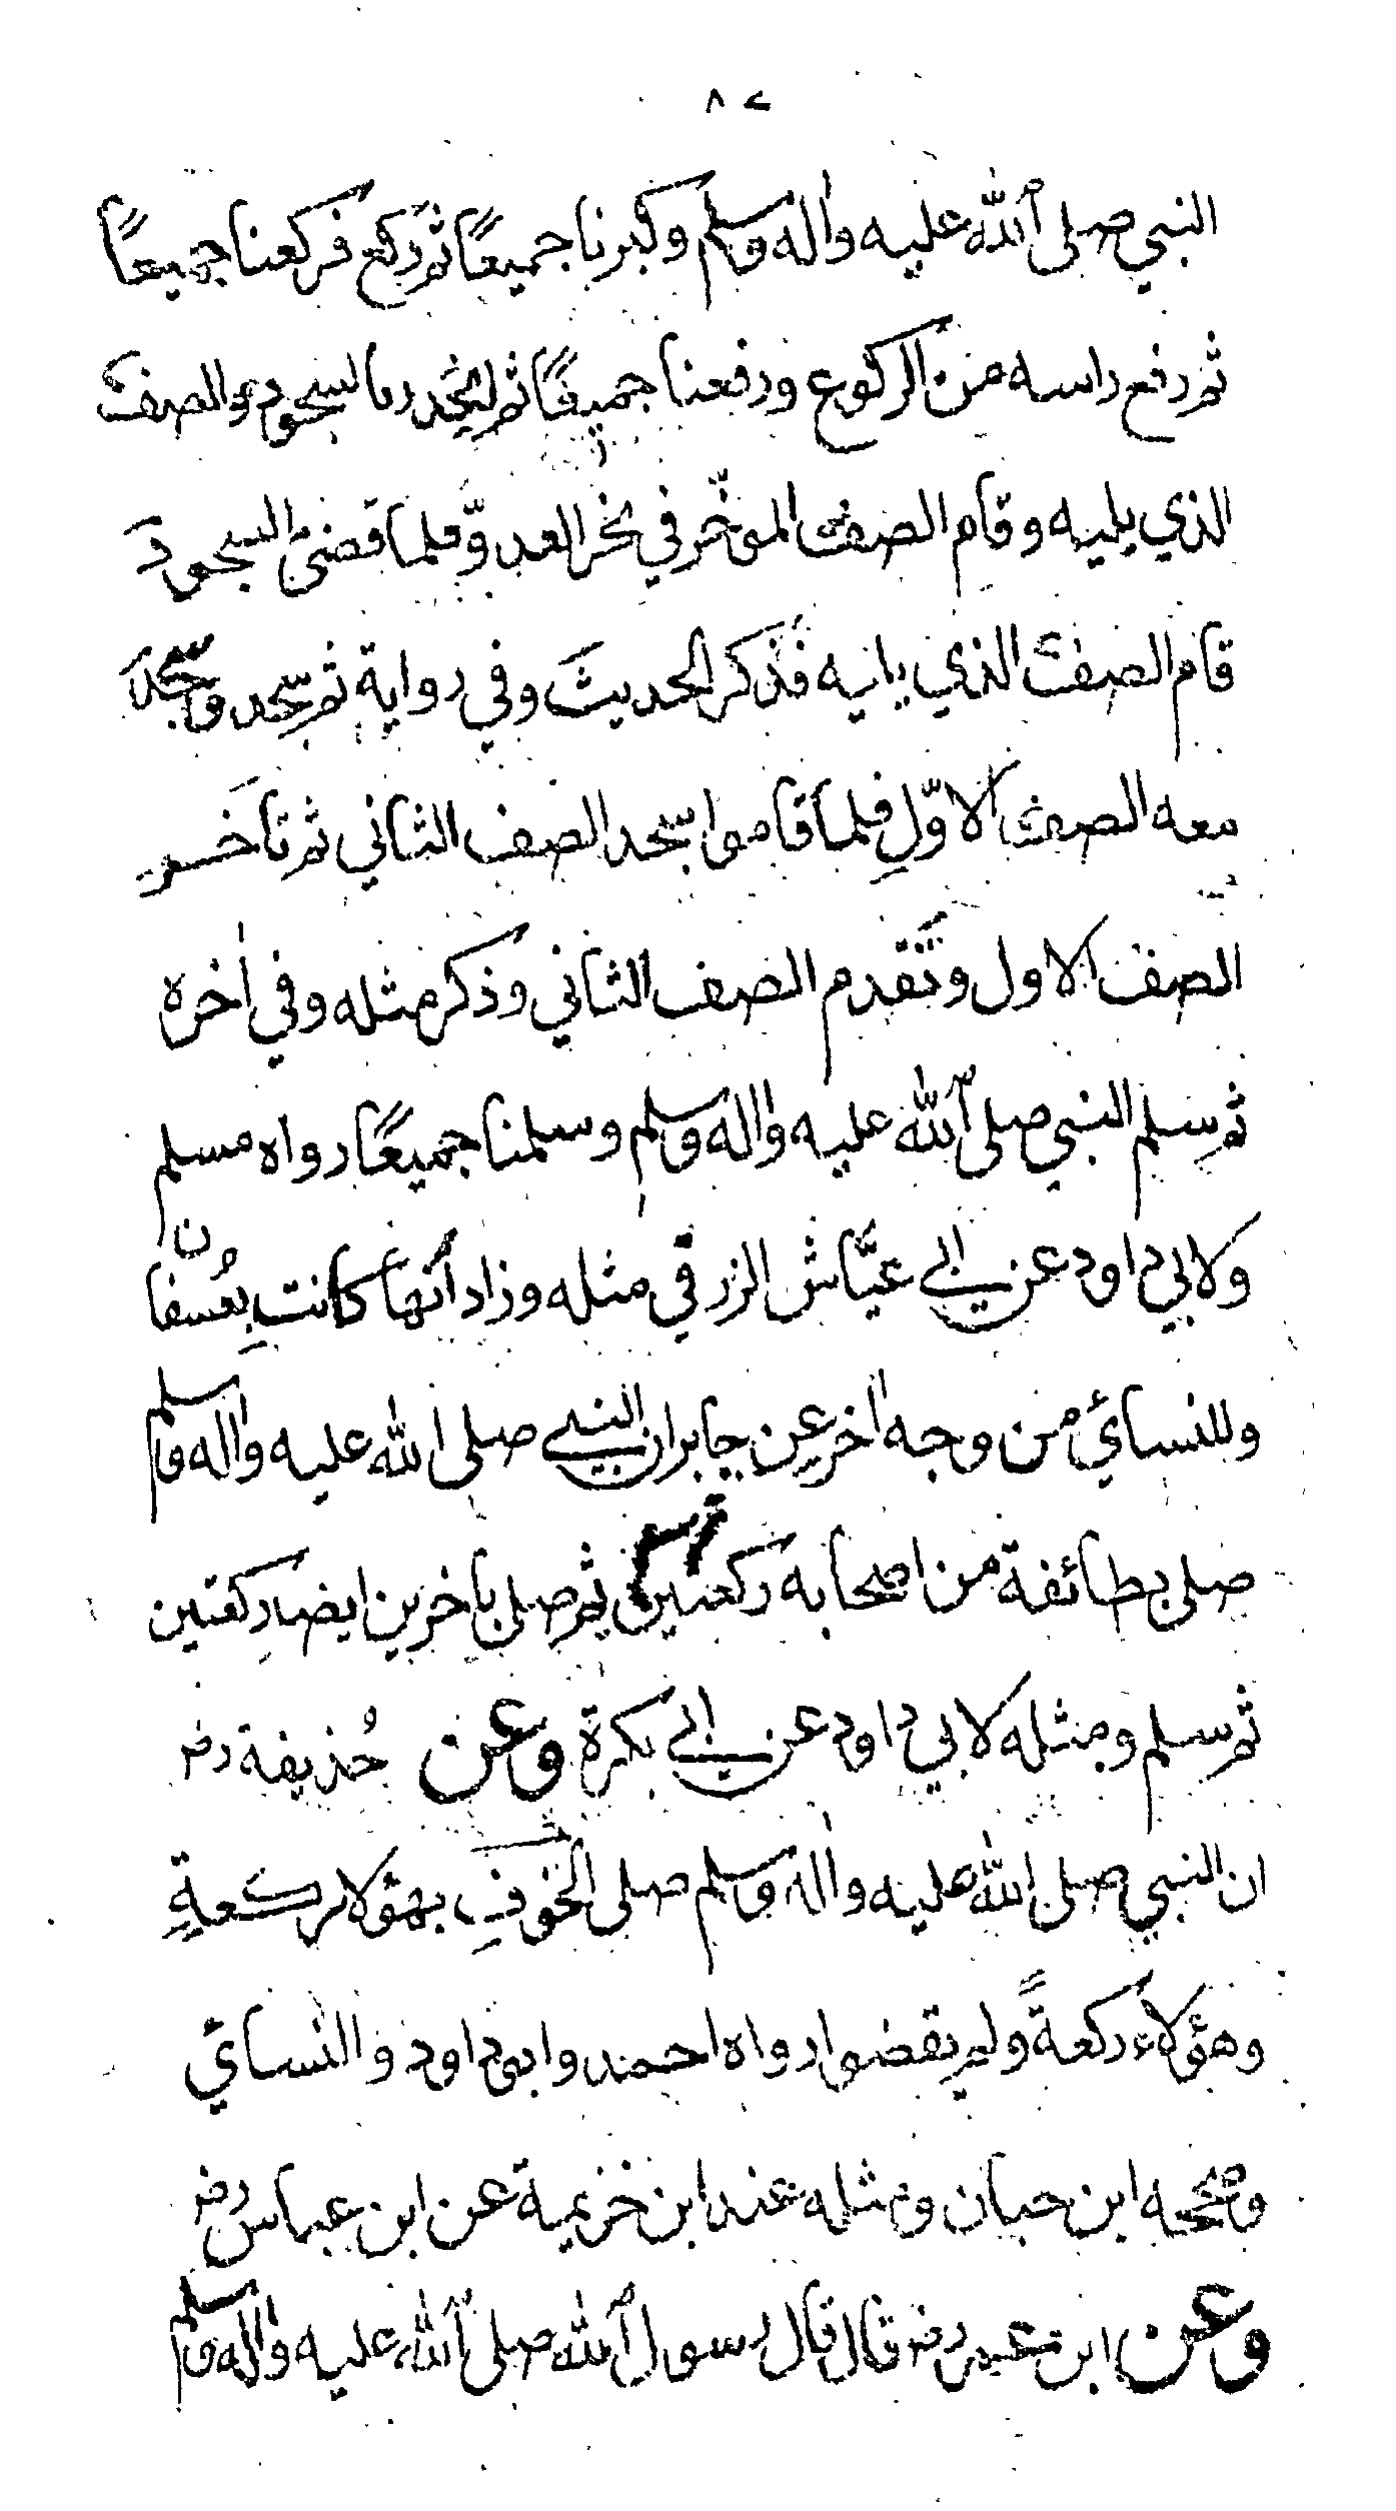 ٨٢
النبي صلى الله عليه واله وسلم وكبرنا جميعًا ثم ركع فركعنا جميعًا
ثم رفع راسه من الركوع ورفعنا جميعًا ثم انحدر بالسجود والصف
الذي يليه وقام الصف المؤخّر في نحر العدوّ فلما قضىٰ السجودَ
قام الصف الذي يليه فَذكر الحديثَ وفي رواية ثم سجد وسجدَ
معه الصف الاوّلِ فلما قاموا سجد الصف الثاني ثم تاَخر
الصف الاول وتَقدم الصف الثاني وذكر مثله وفي اٰخره
ثم سلم النبي صلى الله عليه واٰله وسلم وسلمنا جميعًا رواه مسلم
ولابي داود عن ابي عيَّاش الزرقي مثله وزاد انها كانت بِعُسفان
وللنسائي من وجه اٰخر عن جابر ان النبي صلى الله عليه واٰله وسلم
صلى بطائفة من اصحابه ركعتين ثم سلم ثم صلى باٰخرين ايضا ركعتين
ثم سلم ومثله لابي داود عن ابي بكرة وعن حُذيفة رض
ان النبي صلى الله عليه واٰله وسلم صلى الخوفِ بهؤلا ركعةٍ
وهؤلاء ركعةً ولم يقضوا رواه احمد وابو داود والنسائي
وصححه ابن حبان ومثله عند ابن خزيمة عن ابن عباس رض
وعن ابن عمر رض قال قال رسول الله صلى الله عليه واٰله وسلم